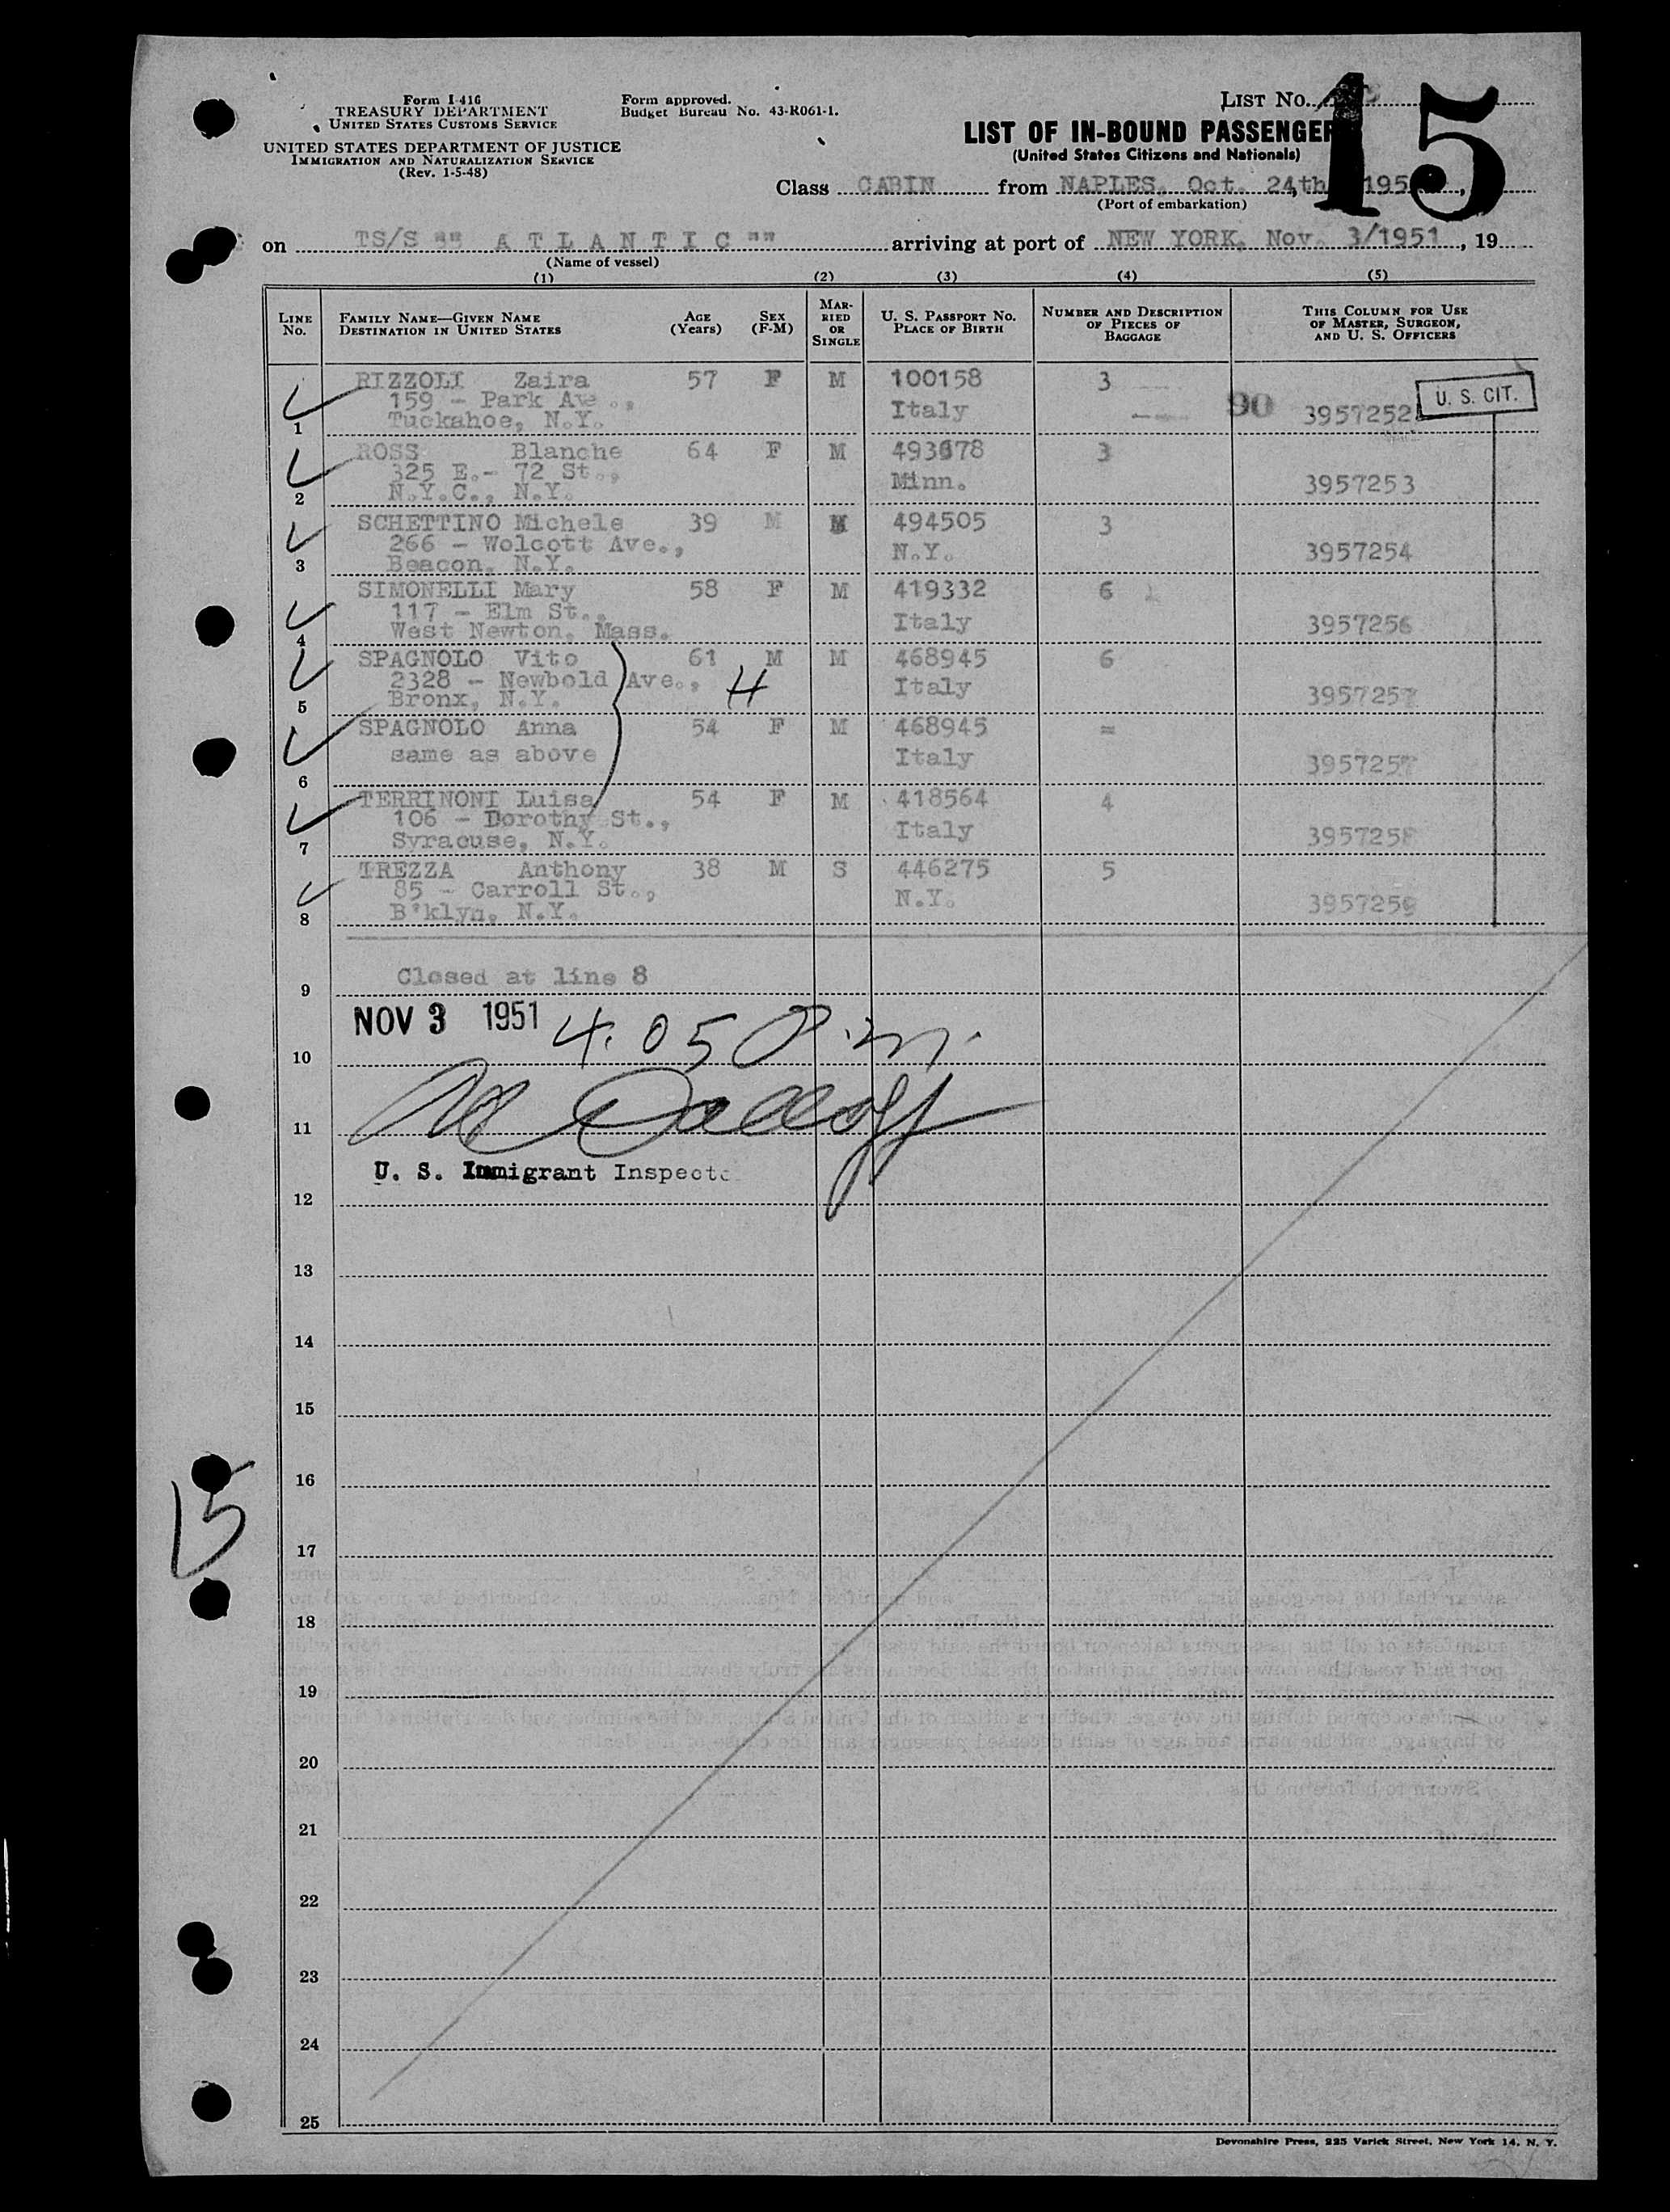 Form I-416
TREASURY DEPARTMENT
UNITED STATES CUSTOMS SERVICE
UNITED STATES DEPARTMENT OF JUSTICE
IMMIGRATION AND NATURALIZATION SERVICE
(Rev. 1-5-48)
Form approved.
Budget Bureau No. 43-R061-1.
LIST No. 15
LIST OF IN-BOUND PASSENGER
(United States Citizens and Nationals)
Class CABIN from NAPLES, Oct. 24th, 195
(Port of embarkation)
on TS/S "" A T L A N T I C "" arriving at port of NEW YORK, Nov. 3/1951, 19
(Name of vessel)
(1) (2) (3) (4) (5)
LINE No. FAMILY NAME—GIVEN NAME DESTINATION IN UNITED STATES AGE (Years) SEX (F-M) MARRIED OR SINGLE U. S. PASSPORT No. PLACE OF BIRTH NUMBER AND DESCRIPTION OF PIECES OF BAGGAGE THIS COLUMN FOR USE OF MASTER, SURGEON, AND U. S. OFFICERS
RIZZOLI Zaira 57 F M 100158 3
159 - Park Ave., Italy 90 3957252 U. S. CIT.
1 Tuckahoe, N.Y.
ROSS Blanche 64 F M 493678 3
325 E.- 72 St., Minn. 3957253
2 N.Y.C., N.Y.
SCHETTINO Michele 39 M M 494505 3
266 - Wolcott Ave., N.Y. 3957254
3 Beacon, N.Y.
SIMONELLI Mary 58 F M 419332 6
117 - Elm St., Italy 3957256
4 West Newton, Mass.
SPAGNOLO Vito 61 M M 468945 6
2328 - Newbold Ave., H Italy 3957257
5 Bronx, N.Y.
SPAGNOLO Anna 54 F M 468945 =
same as above Italy 3957257
6
TERRINONI Luisa 54 F M 418564 4
106 - Dorothy St., Italy 3957258
7 Syracuse, N.Y.
TREZZA Anthony 38 M S 446275 5
85 - Carroll St., N.Y. 3957259
8 B'klyn, N.Y.
9 Closed at line 8
NOV 3 1951 4.05 P.m.
10
11
U. S. Immigrant Inspecto
12
13
14
15
16
15
17
18
19
20
21
22
23
24
25
Devonshire Press, 225 Varick Street, New York 14, N. Y.